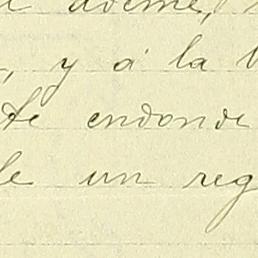 , y á la
te endonde
le un reg